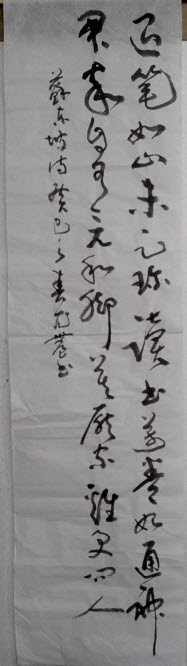 退笔如山未足珍读书萬卷始通神
君家自有元和脚莫厌家雞更问人
蘇东坡诗癸巳之春书